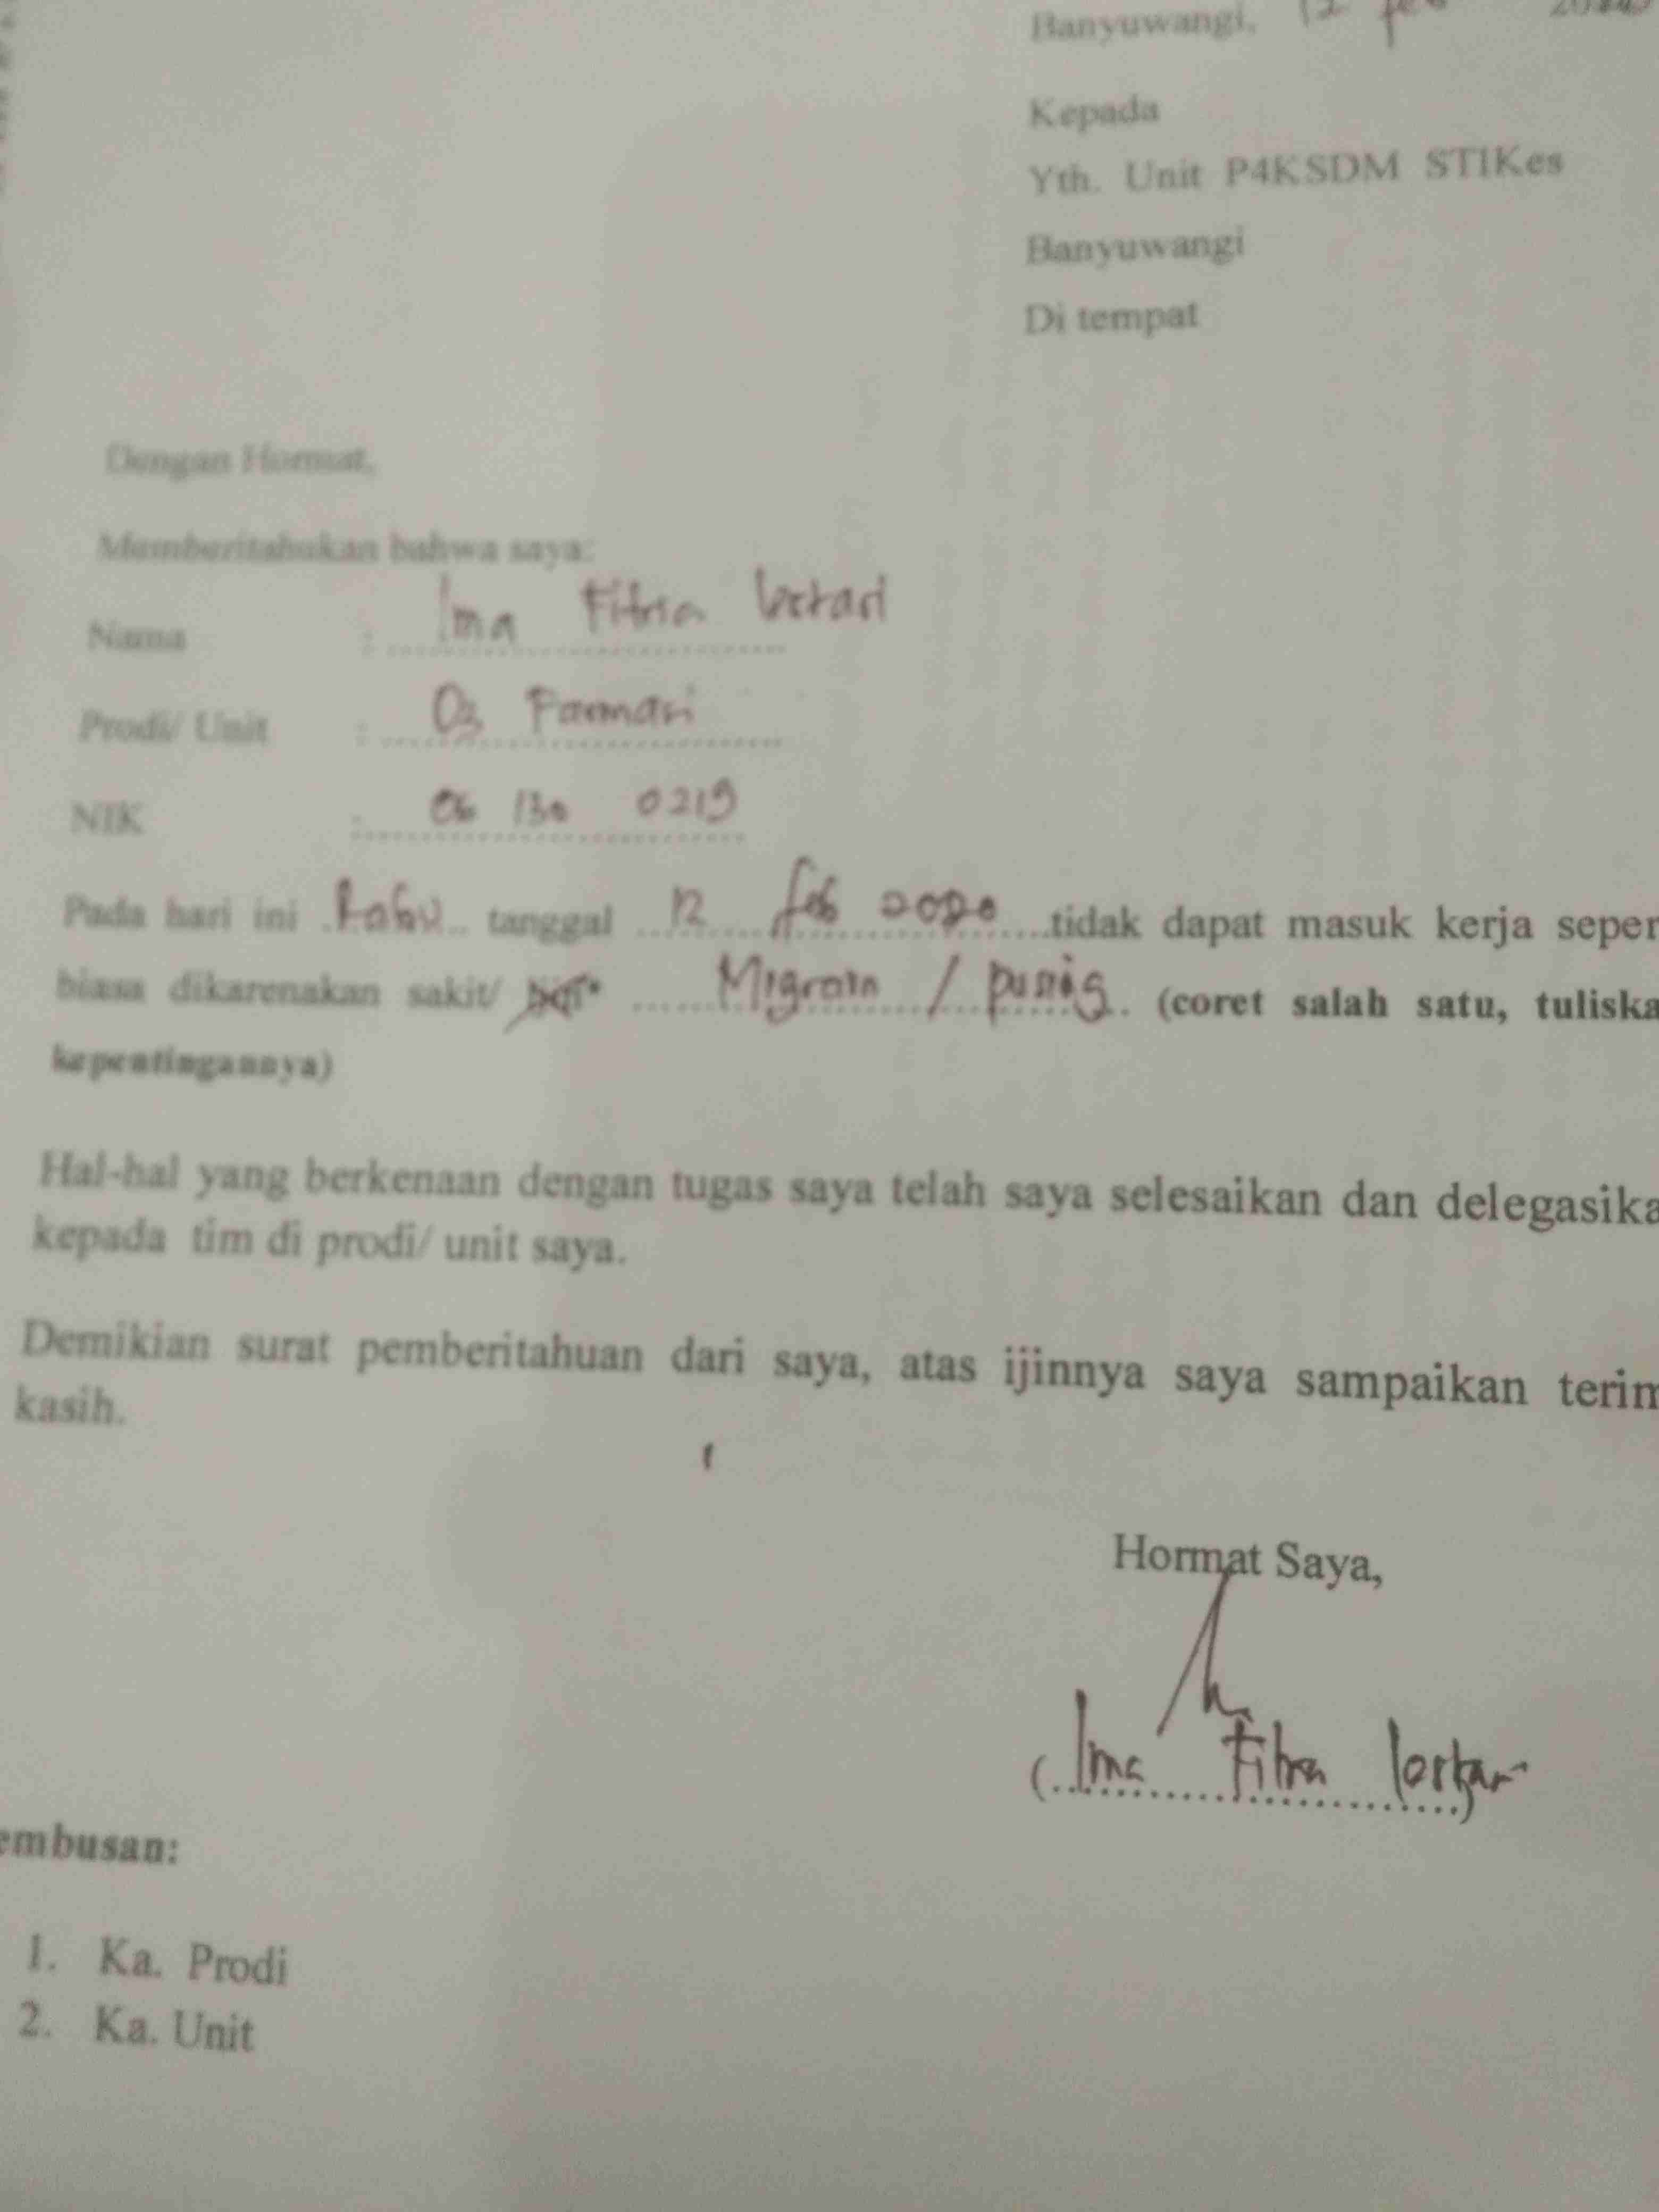 Banyuwangi, 12 feb 2020
Kepada
Yth. Unit P4KSDM STIKes
Banyuwangi
Di tempat
Dengan Hormat,
Memberitahukan bahwa saya:
Nama : Ima Fitria lestari
Prodi/ Unit : D3 Farmasi
NIK : 06 130 0219
Pada hari ini Rabu tanggal 12 feb 2020 tidak dapat masuk kerja seper
biasa dikarenakan sakit/ Migrain / pusing (coret salah satu, tuliska
kepentingannya)
Hal-hal yang berkenaan dengan tugas saya telah saya selesaikan dan delegasika
kepada tim di prodi/ unit saya.
Demikian surat pemberitahuan dari saya, atas ijinnya saya sampaikan terim
kasih.
Hormat Saya,
(Ima Fitria lestari)
embusan:
1. Ka. Prodi
2. Ka. Unit